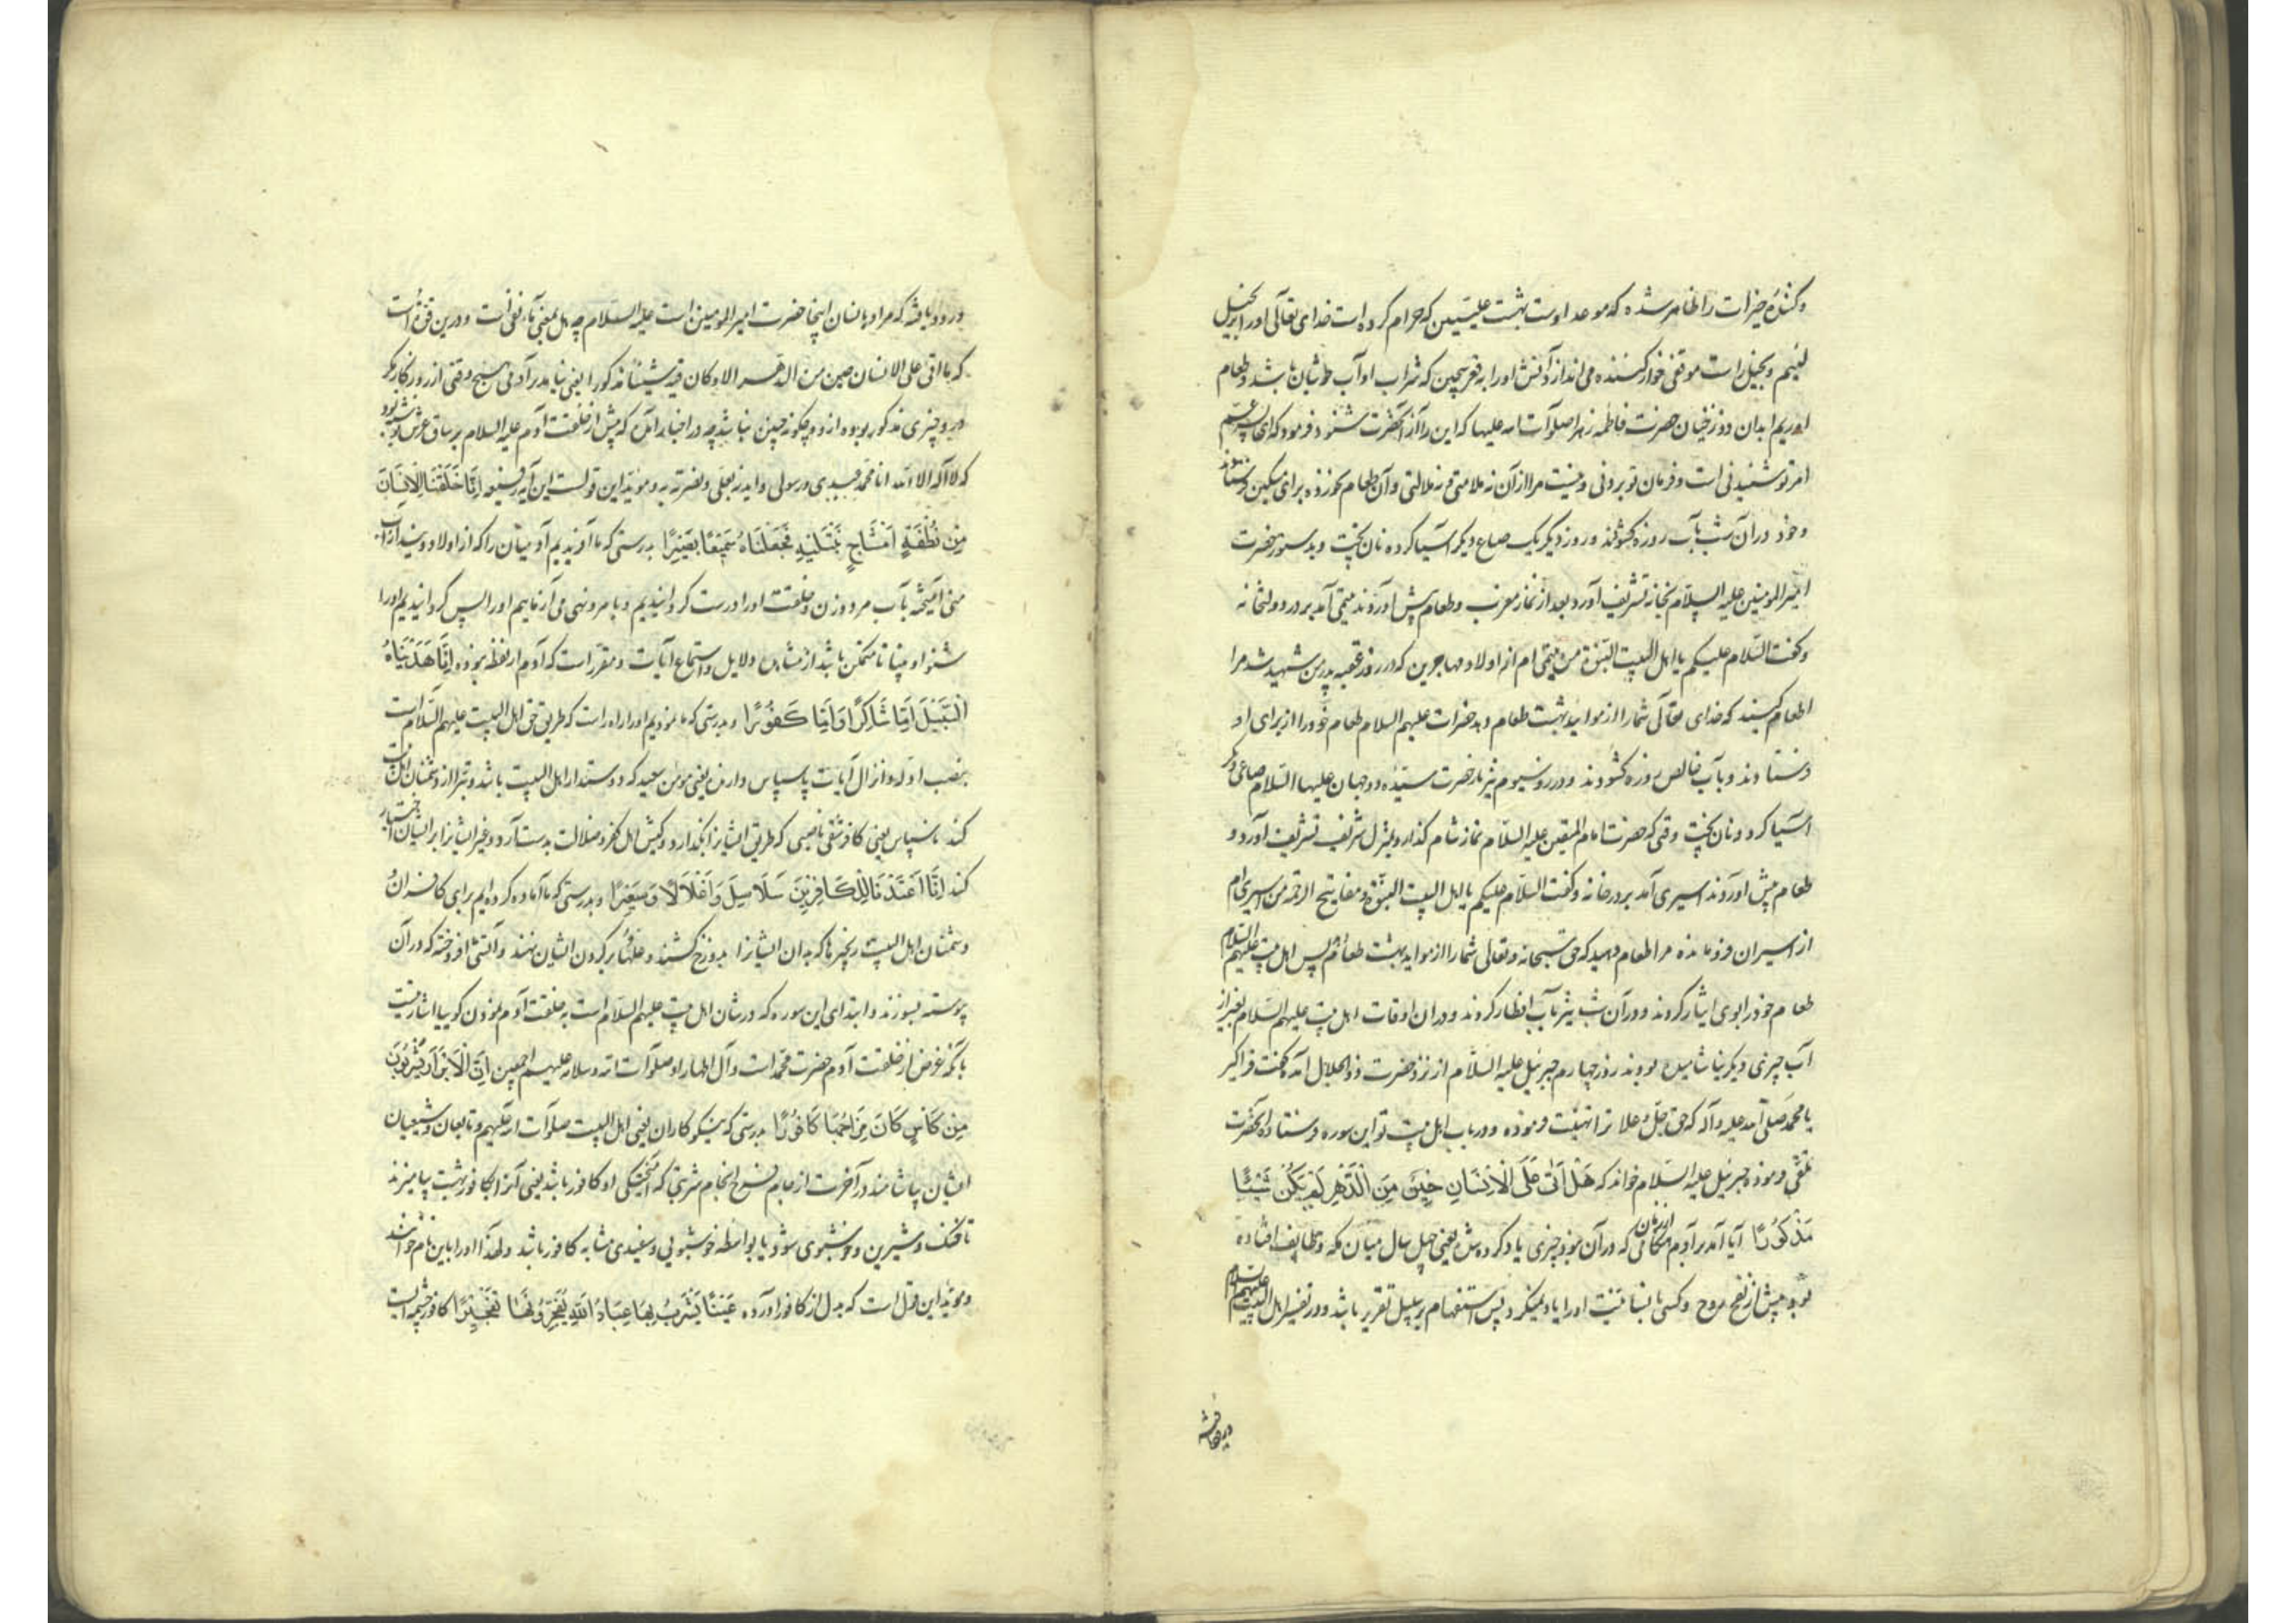 وکننده خیرات را ظاهر شده که موعد اوست بهشت علیین که حرام کرده است خدای تعالی اورا بر بخیل
لئیم و بخیل راست موقفی خوار کننده می اندازد آتش اورا به قعر سجین که شراب او آب جوشان باشد و طعام
او ریم ابدان دوزخیان حضرت فاطمه زهرا صلوات الله علیها که این را از آنحضرت شنود فرمود که ای پسر عم
امر تو شنیدنی است و فرمان تو بردنی و نیست مرا از آن نه ملامتی و نه ملالتی و آن طعام نخورده برای مسکین فرستادند
و خود در آن شب بآب روزه گشودند و روز دیگر یک صاع دیگر آسیا کرده نان پخت و بدستور حضرت
امیر المومنین علیه السلام بخانه تشریف آورد بعد از نماز مغرب و طعام پیش آوردند یتیمی آمد بر در دولتخانه
و گفت السلام علیکم یا اهل البیت النبوة من یتیمی ام از اولاد مهاجرین که در روز عقبه پدر من شهید شد مرا
اطعام کنید که خدای تعالی شما را از مواید بهشت طعام دهد حضرات علیهم السلام طعام خود را از برای او
فرستادند و بآب خالص روزه گشودند و در روز سیوم نیز باز حضرت سیده دو جهان علیها السلام صاعی دیگر
آسیا کرد و نان پخت وقتی که حضرت امام المتقین علیه السلام نماز شام گذارد و بمنزل شریف تشریف آورد و
طعام پیش آوردند اسیری آمد بر در خانه و گفت السلام علیکم یا اهل البیت النبوة و مفاتیح الرحمة من اسیری ام
از اسیران فرومانده مرا طعام دهید که حق سبحانه و تعالی شما را از مواید بهشت طعام دهد پس اهل بیت علیهم السلام
طعام خود را بوی ایثار کردند و در آن شب نیز بآب افطار کردند و در آن اوقات اهل بیت علیهم السلام بغیر از
آب چیزی دیگر نیاشامیده بودند روز چهارم جبرئیل علیه السلام از نزد حضرت ذو الجلال آمد و گفت فراگیر
یا محمد صلی الله علیه و آله که حق جل و علا ترا تهنیت فرموده و در باب اهل بیت تو این سوره فرستاده آنحضرت
تلقی فرموده جبرئیل علیه السلام خواند که هَلْ أَتَىٰ عَلَى الْإِنْسَانِ حِينٌ مِنَ الدَّهْرِ لَمْ يَكُنْ شَيْئًا
مَذْكُورًا آیا آمد بر آدم هنگامی از زمان که در آن نبود چیزی یاد کرده شده یعنی چهل سال میان مکه و طایف افتاده
بود پیش از نفخ روح و کسی بانسانیت اورا یاد نمیکرد پس استفهام بر سبیل تقریر باشد و در تفسیر اهل البیت علیهم السلام
ورود یافته
ورود یافته که مراد بانسان اینجا حضرت امیر المومنین است علیه السلام چه هل بمعنی ما نفی است و درین قرائت
که ما اتی علی الانسان حین من الدهر الا و کان فیه شیئا مذکورا یعنی نیامد بر آدمی هیچ وقتی از روزگار مگر
درو چیزی مذکور بوده از و و چگونه چنین نباشد چه در اخبار آمده که پیش از خلقت آدم علیه السلام بر ساق عرش نوشته بود
که لا اله الا الله انا محمد عبدی و رسولی و ایدته بعلی و نصرته به و موید این قولست این آیه
إِنَّا خَلَقْنَا الْإِنْسَانَ
مِنْ نُطْفَةٍ أَمْشَاجٍ نَبْتَلِيهِ فَجَعَلْنَاهُ سَمِيعًا بَصِيرًا بدرستی که ما آفریدیم آدمیان را که از اولاد
منی آمیخته بآب مرد و زن و خلقت اورا درست گردانیدیم و بامر و نهی می آزماییم اورا پس گردانیدیم اورا
شنوا و بینا تا متمکن باشد از مشاهده دلایل و استماع آیات و مقرر است که آدم از نطفه نبوده إِنَّا هَدَيْنَاهُ
السَّبِيلَ إِمَّا شَاكِرًا وَإِمَّا كَفُورًا و بدرستی که ما نمودیم اورا راه راست که طریق حق اهل البیت علیهم السلام است
بنصب ادله و انزال آیات یا سپاس دارنده یعنی مومن سعید که دوستدار اهل البیت باشد و تبرا از دشمنان ایشان
کند یا ناسپاس یعنی کافر شقی ناصبی که طریق ایشانرا بگذارد و کیش اهل کفر و ضلالت بدست آرد و غیر ایشانرا بر ایشان اختیار
کند إِنَّا أَعْتَدْنَا لِلْكَافِرِينَ سَلَاسِلَ وَأَغْلَالًا وَسَعِيرًا و بدرستی که ما آماده کرده ایم برای کافران و
دشمنان اهل البیت زنجیرها که بدان ایشانرا بدوزخ کشند و غلها بر گردن ایشان نهند و آتشی افروخته که در آن
پیوسته بسوزند و ابتدای این سوره که در شان اهل بیت علیهم السلام است به خلقت آدم نمودن گوییا اشارتیست
بآنکه غرض از خلقت آدم حضرت محمد است و آل اطهار او صلوات الله و سلامه علیهم اجمعین إِنَّ الْأَبْرَارَ يَشْرَبُونَ
مِنْ كَأْسٍ كَانَ مِزَاجُهَا كَافُورًا بدرستی که نیکوکاران یعنی اهل البیت صلوات الله علیهم و تابعان و شیعیان
ایشان بیاشامند در آخرت از جام فرح انجام شربتی که آمیختگی او کافور باشد یعنی آنرا بکافور بهشت بیامیزند
تا خنک و شیرین و خوشبوی شود یا بواسطه خوشبویی و سفیدی مشابه کافور باشد و لهذا اورا باین نام خوانند
و موید این قول است که بدل از کافور آورده عَيْنًا يَشْرَبُ بِهَا عِبَادُ اللَّهِ يُفَجِّرُونَهَا تَفْجِيرًا کافور چشمه ایست